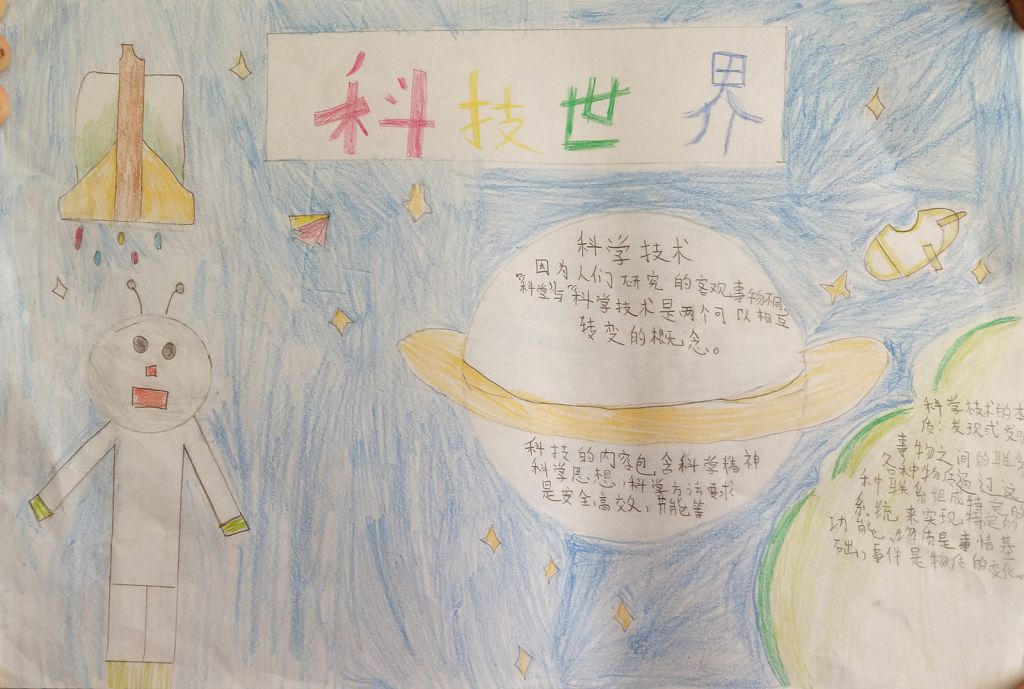 科技世界
科学技术
因为人们研究的客观事物不同,
"科学"与"科学技术是两个可以相互
转变的概念。
科技的内容包含科学精神
科学思想,科学方法要求
是安全,高效,节能等
科学技术的本
质:发现或发明
事物之间的联系
各种物质通过这
种联系组成特定的
系统来实现特定的
功能、物质是事情基
础,事件是物质的变化。